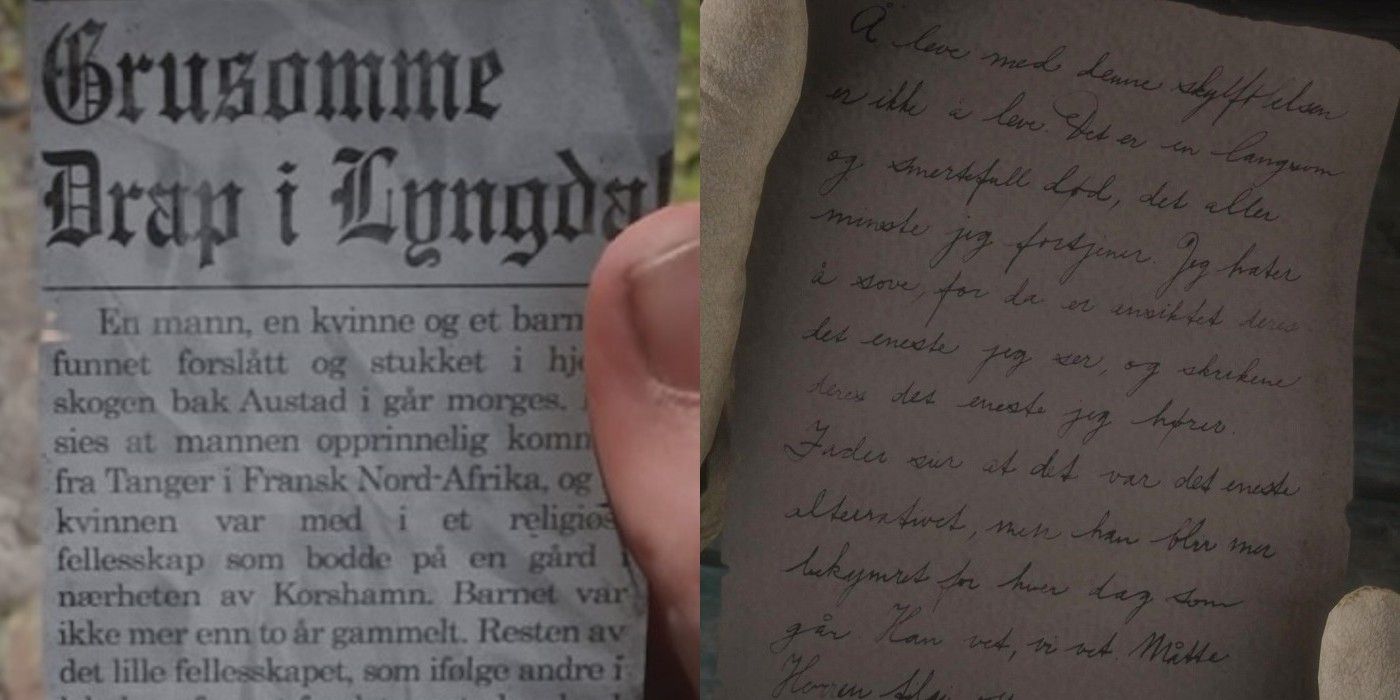 Grusomme
Drap i Lyngdal
En mann, en kvinne og et barn
funnet forslått og stukket i
skogen bak Austad i går morges.
sies at mannen opprinnelig
fra Tanger i Fransk Nord-Afrika, og
kvinnen var med i et religiøs
fellesskap som bodde på en gård i
nærheten av Korshamn. Barnet var
ikke mer enn to år gammelt. Resten av
det lille fellesskapet, som ifølge andre i
Å leve med denne skyldfølelsen
er ikke å leve. Det er en langsom
og smertefull død, det aller
minste jeg fortjener. Jeg hater
å sove, for da er ansiktet deres
det eneste jeg ser, og skrikene
deres det eneste jeg hører.
Fader sier at det var det eneste
alternativet, men han blir mer
bekymret for hver dag som
går. Han vet, vi vet. Måtte
Herren